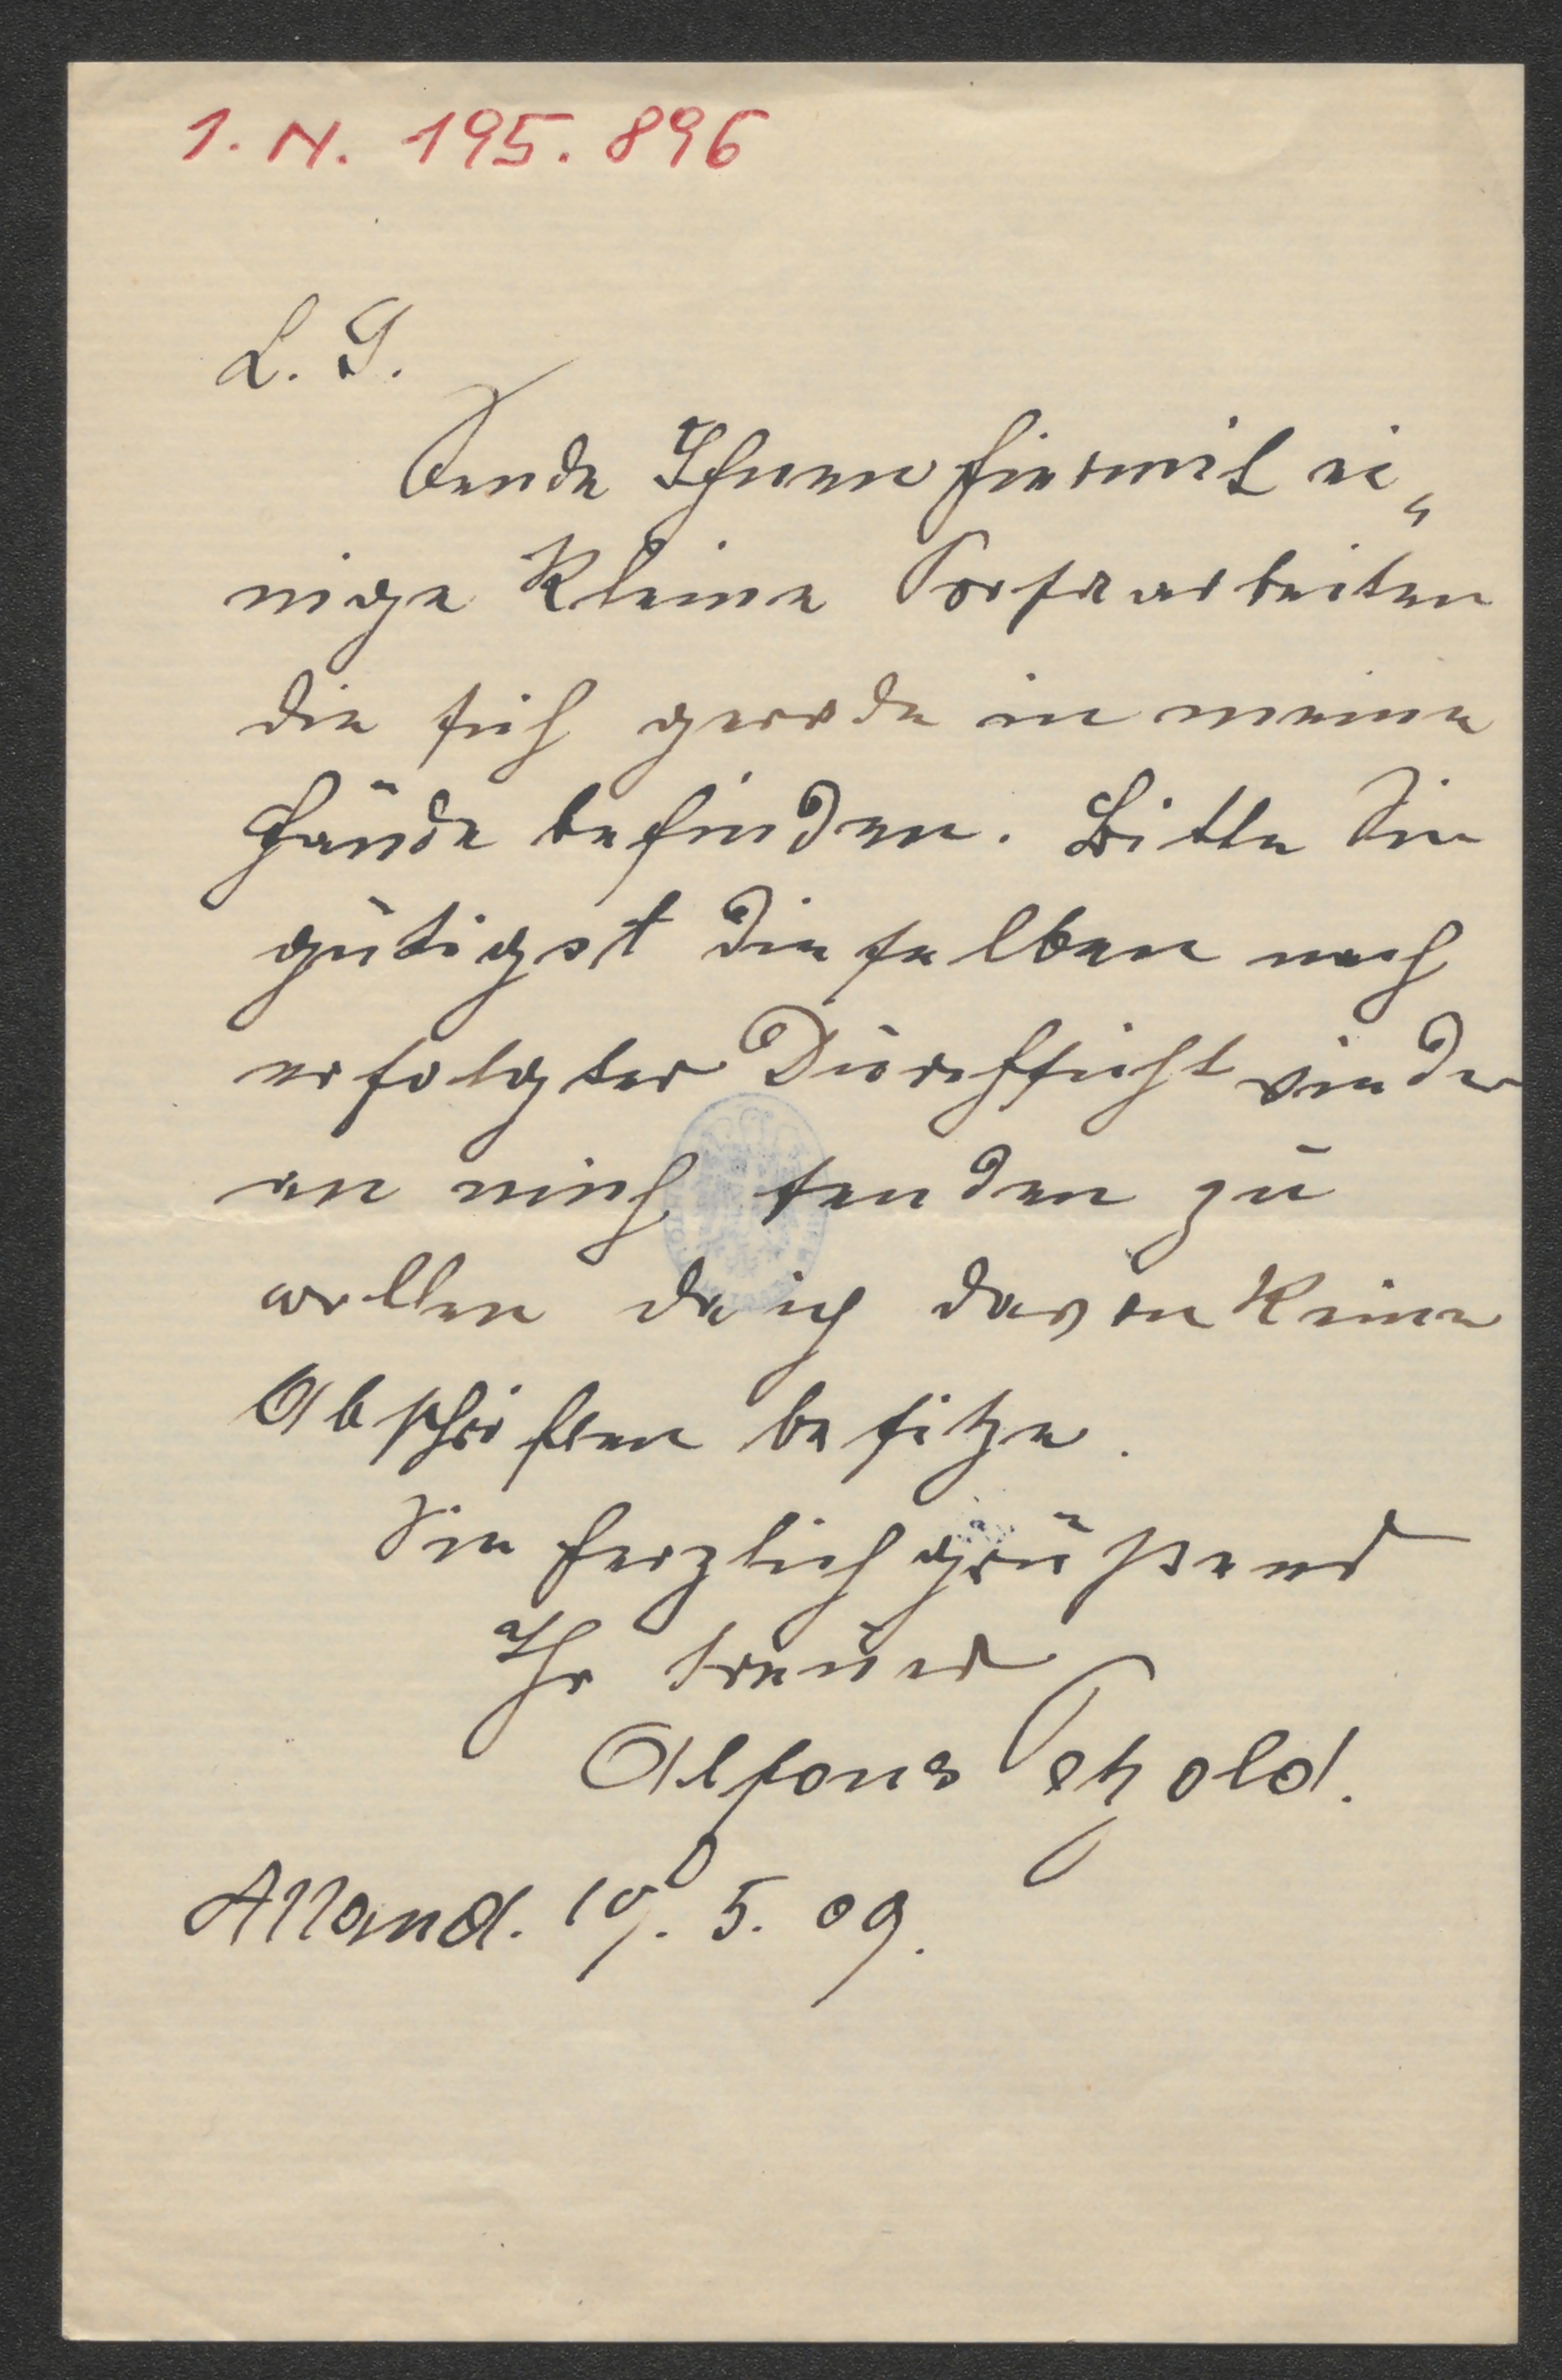 I. N. 195.896
L. G.
Sende Ihnen hiermit ei„
nige kleine Versarbeiten
die sich gerade in meine
Hände befinden. Bitte Sie
gütigst dieselben nach
erfolgter Durchsicht wieder
an mich senden zu
wollen da ich davon keine
Abschriften besitze.
Sie herzlich grüßend
Ihr treuer
Alfons Petzold.
Alland. 19. 5. 09.